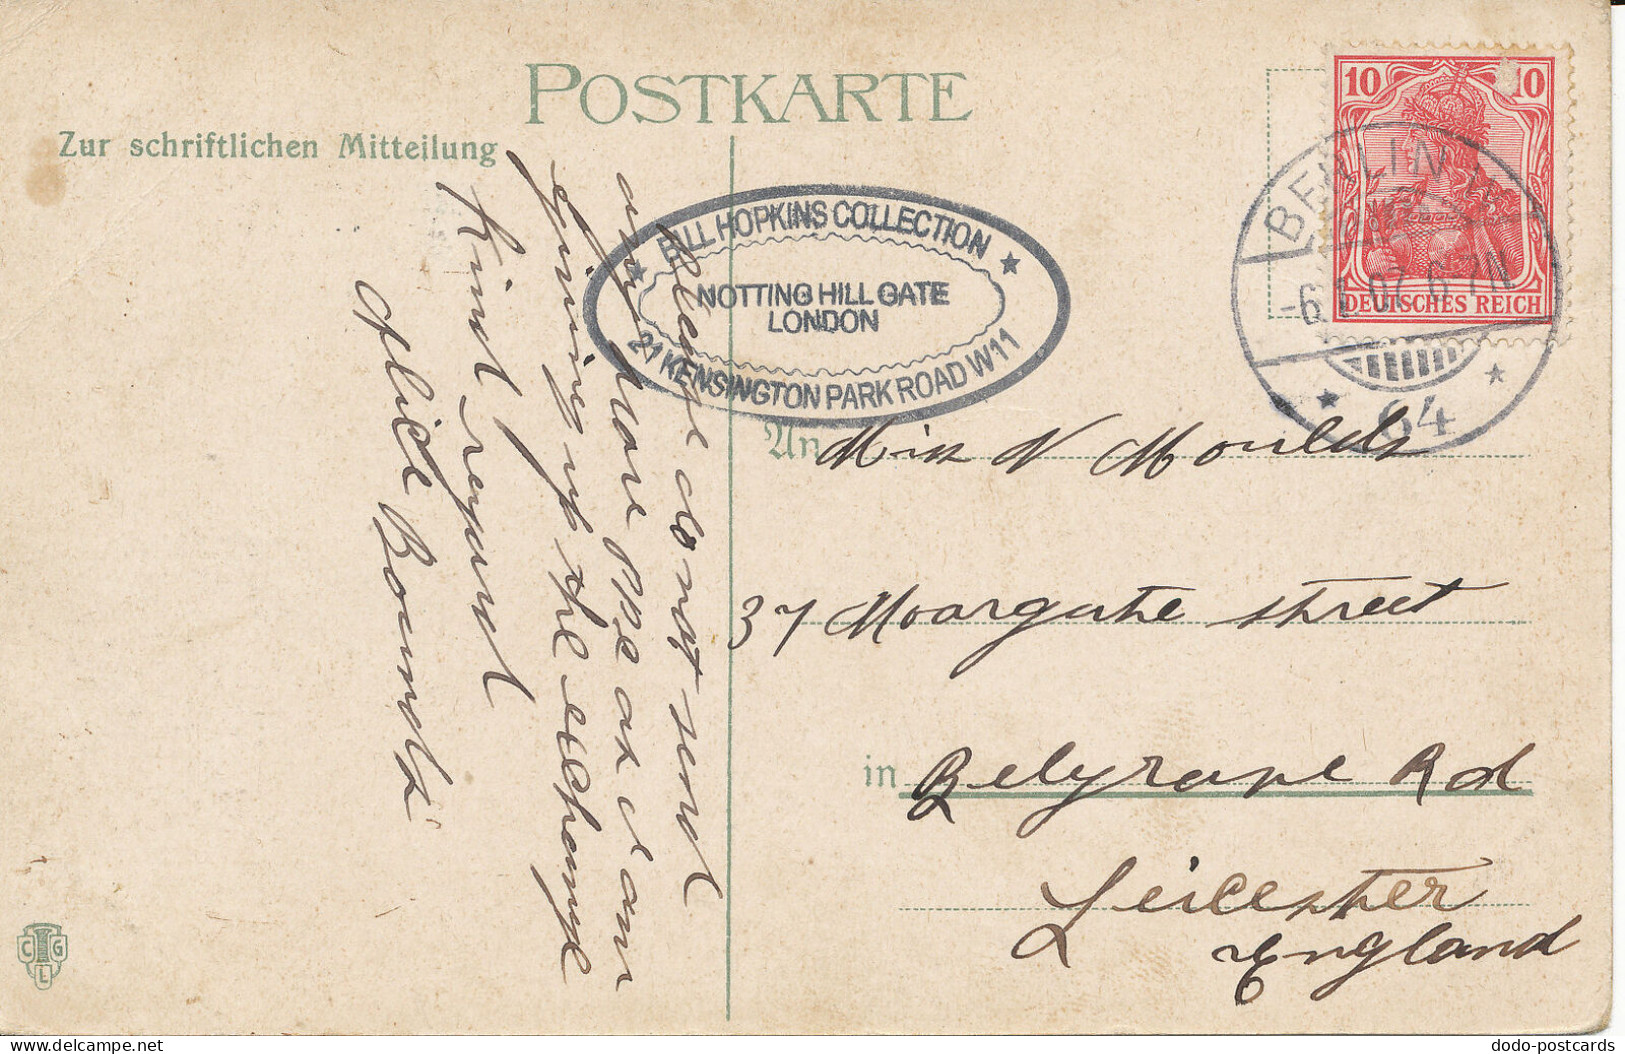 POSTKARTE
Zur schriftlichen Mitteilung
10 10
DEUTSCHES REICH
BERLIN
-6. 07. 6-7N
64
BILL HOPKINS COLLECTION
NOTTING HILL GATE
LONDON
21 KENSINGTON PARK ROAD W11
Please do not send
any more PPC as I am
giving up the exchange
Kind regard
Alice
An Miss N Moulds
37 Moorgate street
in Belgrave Rd
Leicester
England
C G
L
delcampe.net
dodo-postcards